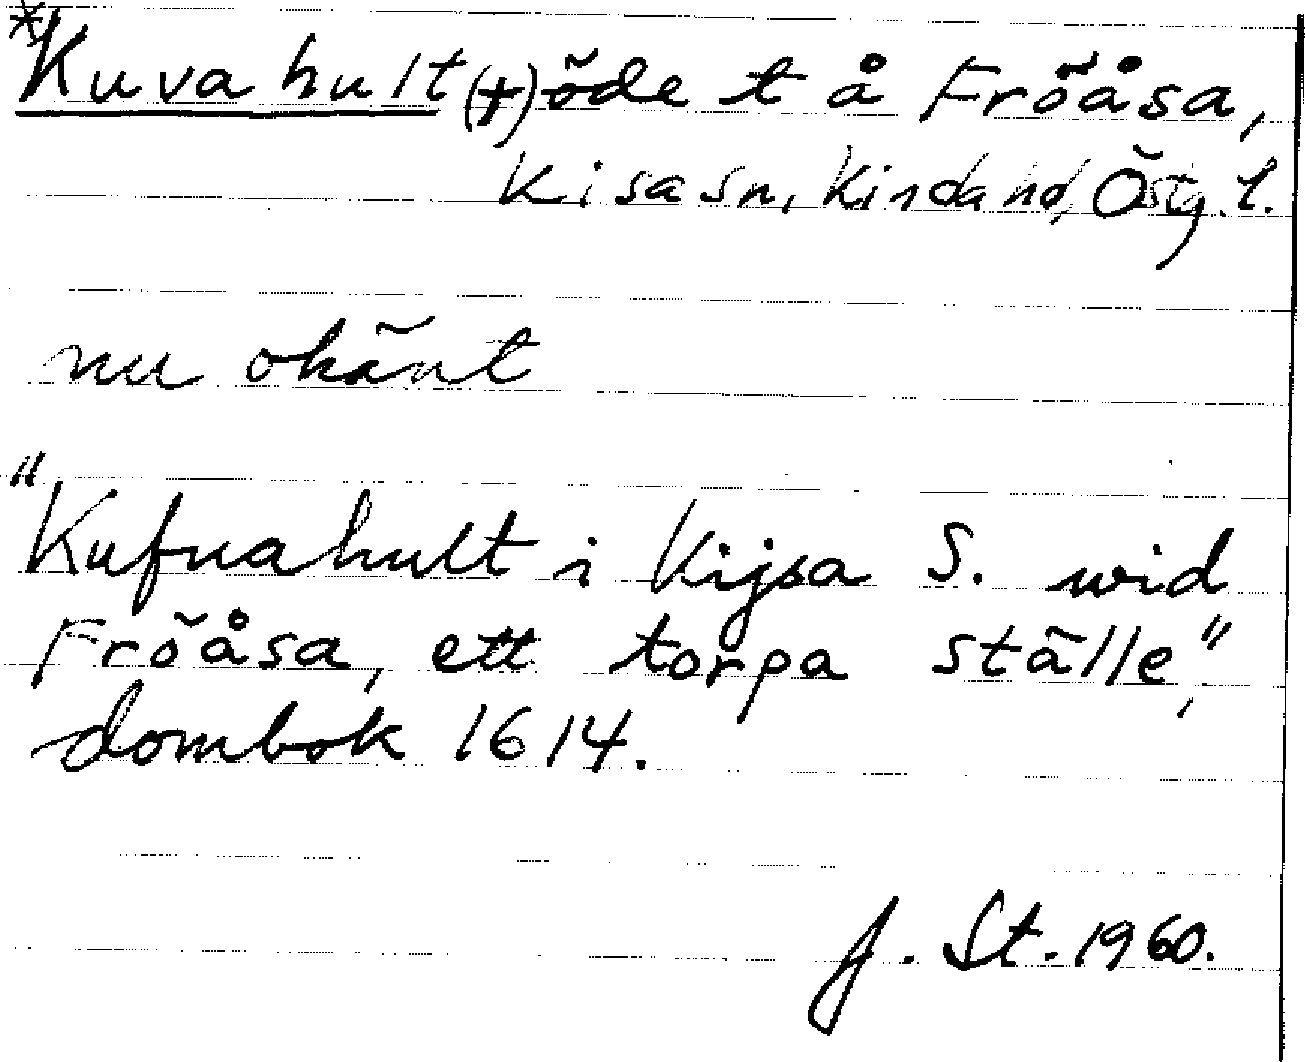 *Kuvahult (†) öde t å Fröåsa,
Kisa sn, Kinda hd, Östg. l.
nu okänt
"Kufuahult i Kijsa S. wid
Fröåsa, ett torpa ställe",
dombok 1614.
J. St. 1960.